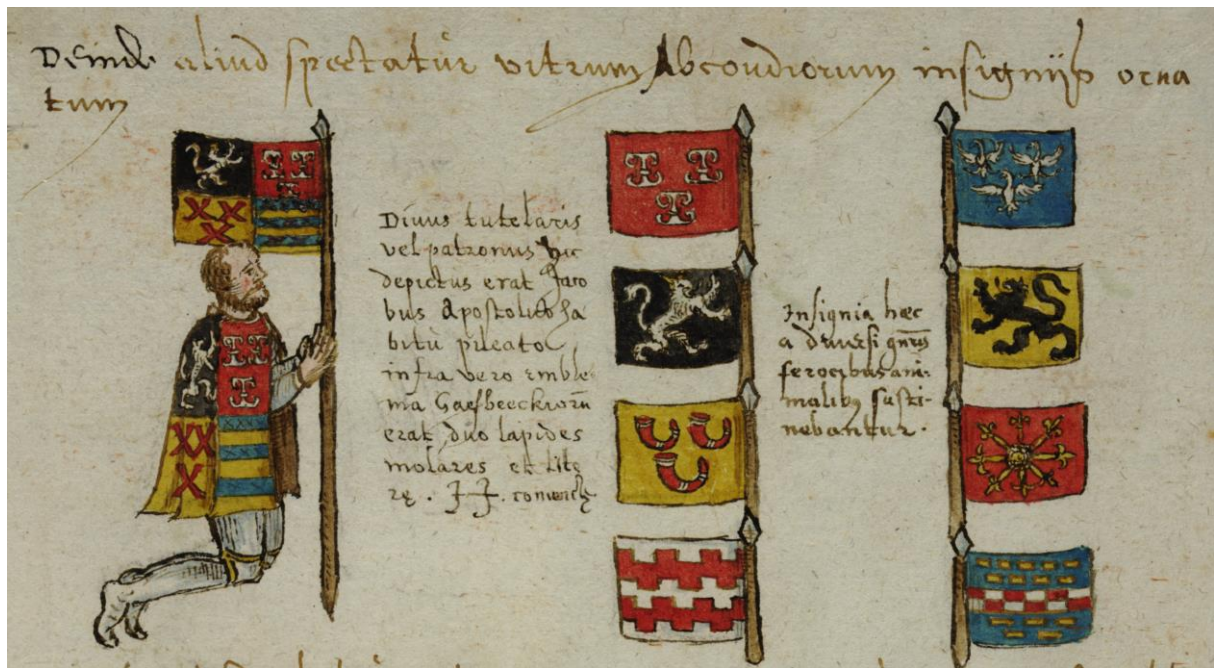 Deinde aliud spectatur vitrum Abcoudiorum insigniis orna
tum
Divus tutelaris
vel patronus hic
depictus erat Jaco
bus Apostolus ha
bitu pileato
infra vero emble
ma Gaesbeeckiorũ
erat duo lapides
molares et lite
rę . JJ.
Insignia hæc
a diversi gnẽris
ferocibus ani-
malibus susti-
nebantur.